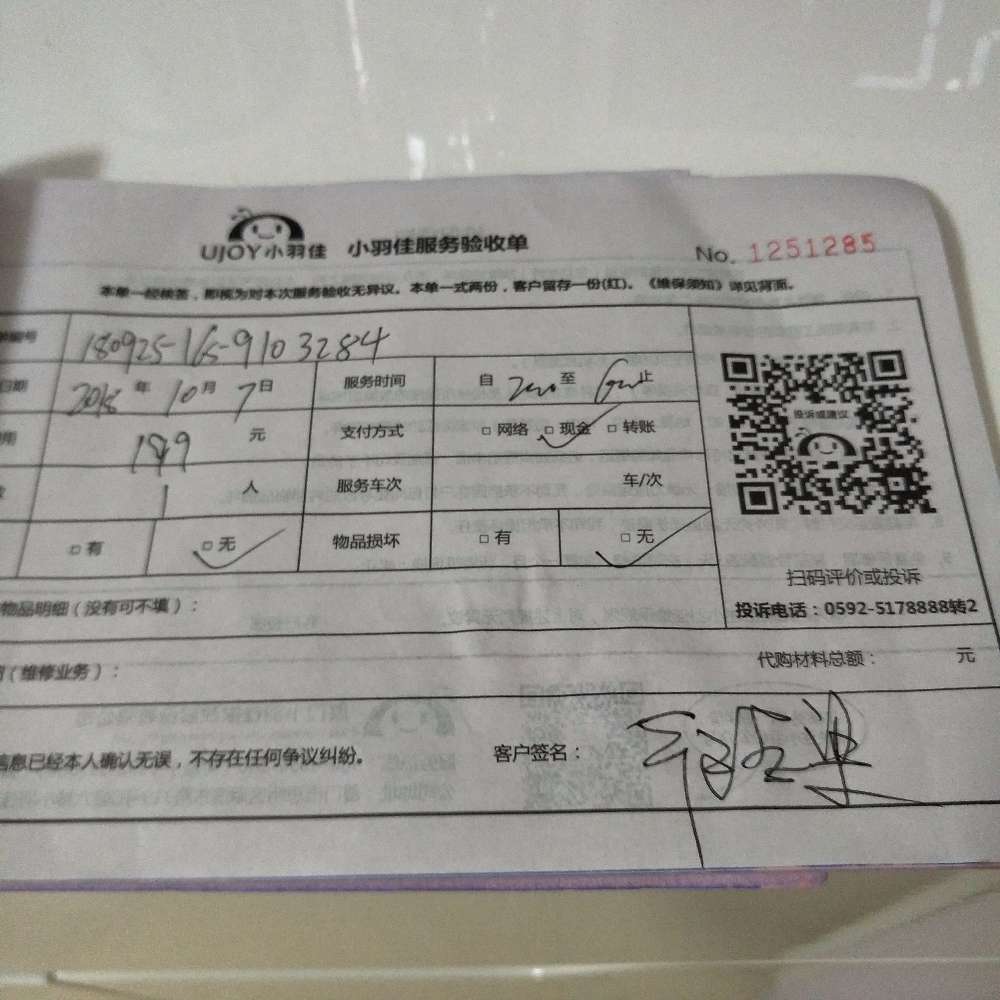 UJOY小羽佳 小羽佳服务验收单 No. 1251285
本单一经核签，即视为对本次服务验收无异议。本单一式两份，客户留存一份(红)。《维保须知》详见背面。
编号 180925-165-9103284
日期 2018 年 10 月 7 日 服务时间 自 至 止
用 199 元 支付方式 □ 网络 □ 现金 □ 转账
1 人 服务车次 车/次
□ 有 □ 无 物品损坏 □ 有 □ 无
投诉或建议
扫码评价或投诉
投诉电话：0592-5178888转2
物品明细（没有可不填）：
（维修业务）： 代购材料总额： 元
信息已经本人确认无误，不存在任何争议纠纷。 客户签名：